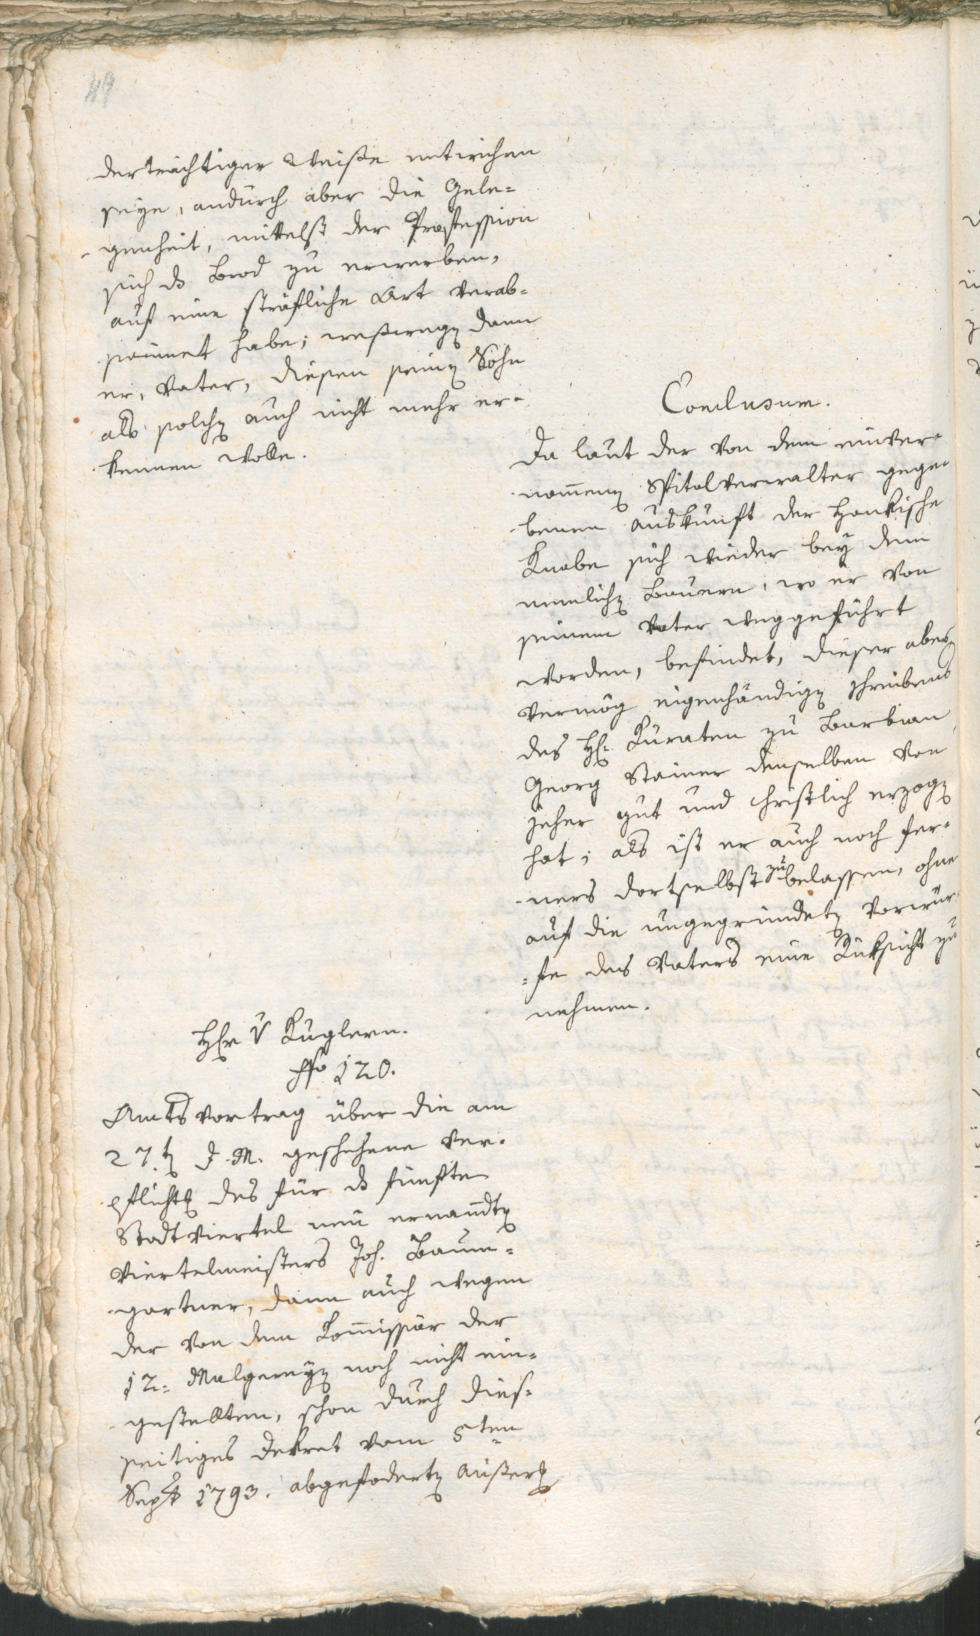 49
derträchtiger Weise entwichen
seye, andurch aber die Gele-
genheit, mittelst der Profession
sich ds Brod zu erwerben,
auf eine sträfliche Art verab-
säumet habe; weßwegen dann
er, Vater, diesen seinen Sohn
als solchen auch nicht mehr er-
kennen wolle.
Conclusum.
Da laut der von dem einver-
nom̅enen Spitalverwalter gege-
benen Auskunft der Hankische
Knabe sich wieder bey dem
nemlichen Bauern, wo er von
seinem Vater weggeführt
worden, befindet, dieser aber
vermög eigenhändigen Schreibens
des H. Kuraten zu Barbian
Georg Stainer denselben von
jeher gut und christlich erzogen
hat; als ist er auch noch fer-
ners dortselbst zu belassen, ohne
auf die ungegründeten Vorwür-
fe des Vaters eine Rüksicht zu
nehmen.
Hr v Kuglern.
No 120.
Amtsvortrag über die am
27.ten d. M. geschehene Ver-
pflichtg des für ds fünfte
Stadtviertel neu ernanndten
Viertelmeisters Joh. Baum-
gartner, dann auch wegen
der von dem Kom̅issär der
12= Malgreyen noch nicht ein-
gestellten, schon durch dies-
seitiges Dekret vom 5ten
Sept 1793. abgefoderten Äußerg